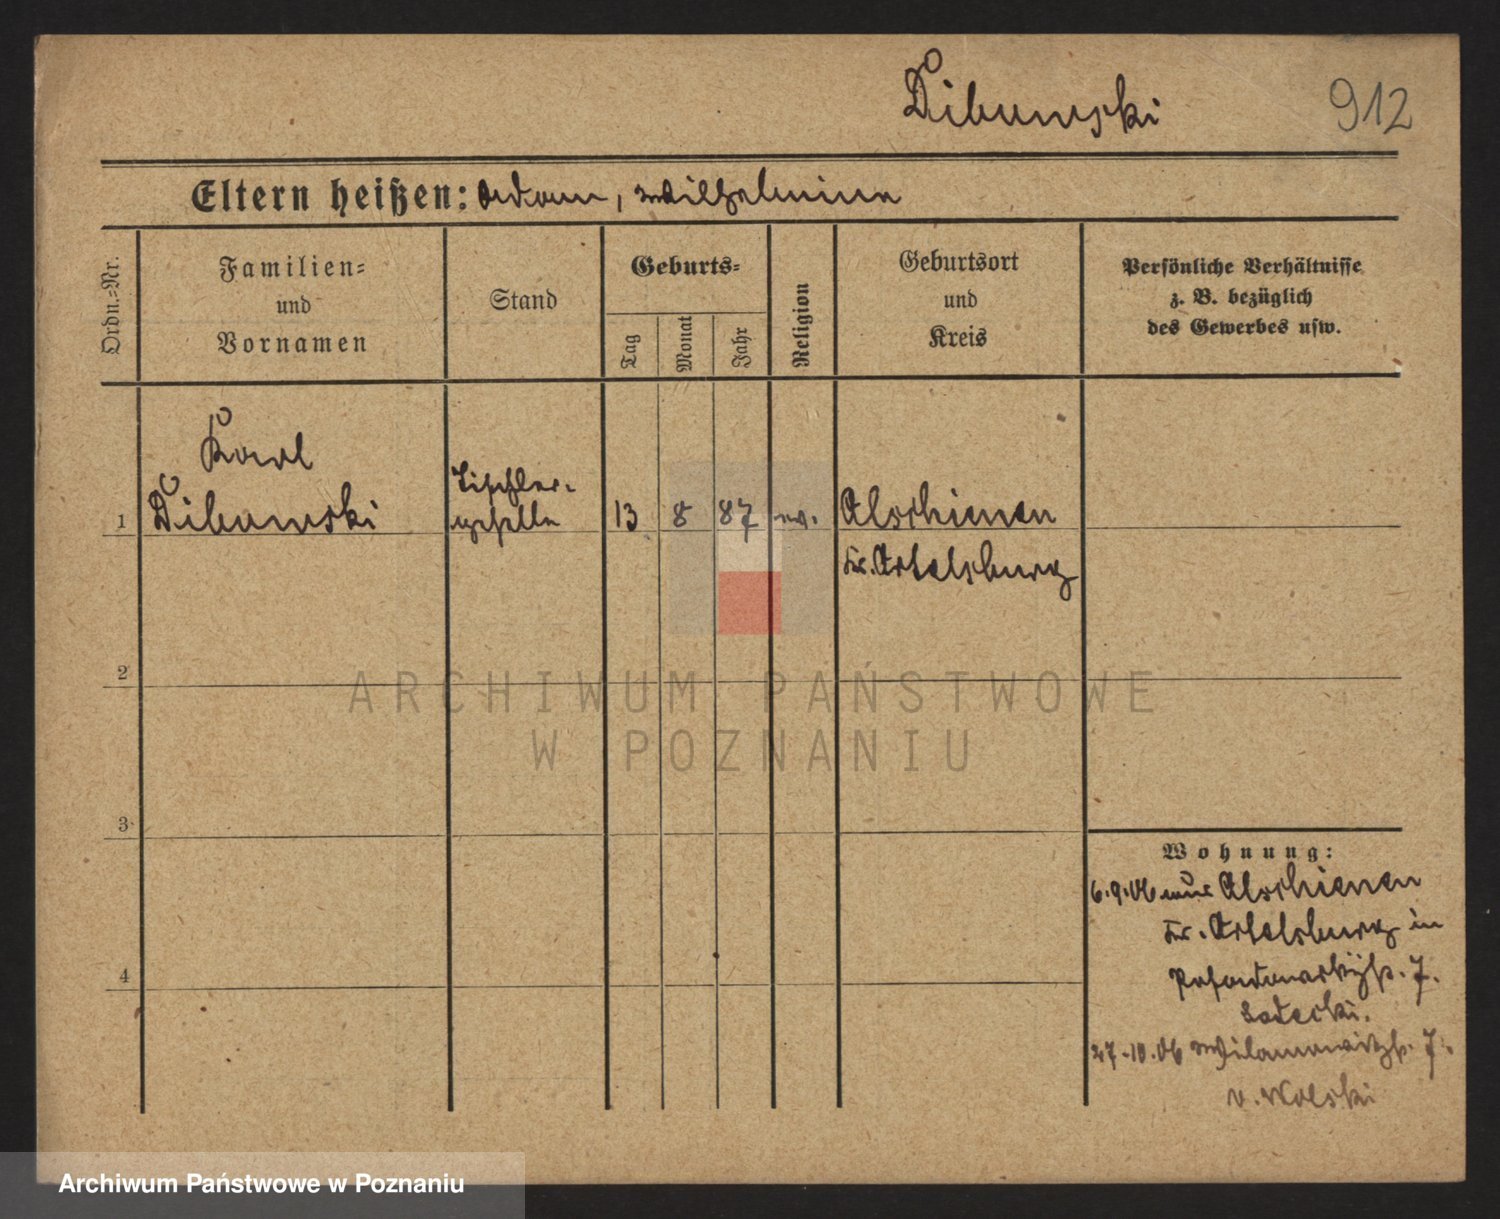 Dibowski
912
Eltern heißen: Adam, Wilhelmine
Ordn.-Nr.
Familien-
und
Vornamen
Stand
Geburts-
Tag
Monat
Jahr
Religion
Geburtsort
und
Kreis
Persönliche Verhältnisse
z. B. bezüglich
des Gewerbes usw.
Karl
Tischler-
1 Dibowski geselle 13 8 87 ev. Alschienen
Kr. Ortelsburg
2
3
4
Wohnung:
6.9.06 aus Alschienen
Kr. Ortelsburg in
7.
Sadecki.
27.10.06 7.
v. Wolski
ARCHIWUM PAŃSTWOWE
W POZNANIU
Archiwum Państwowe w Poznaniu